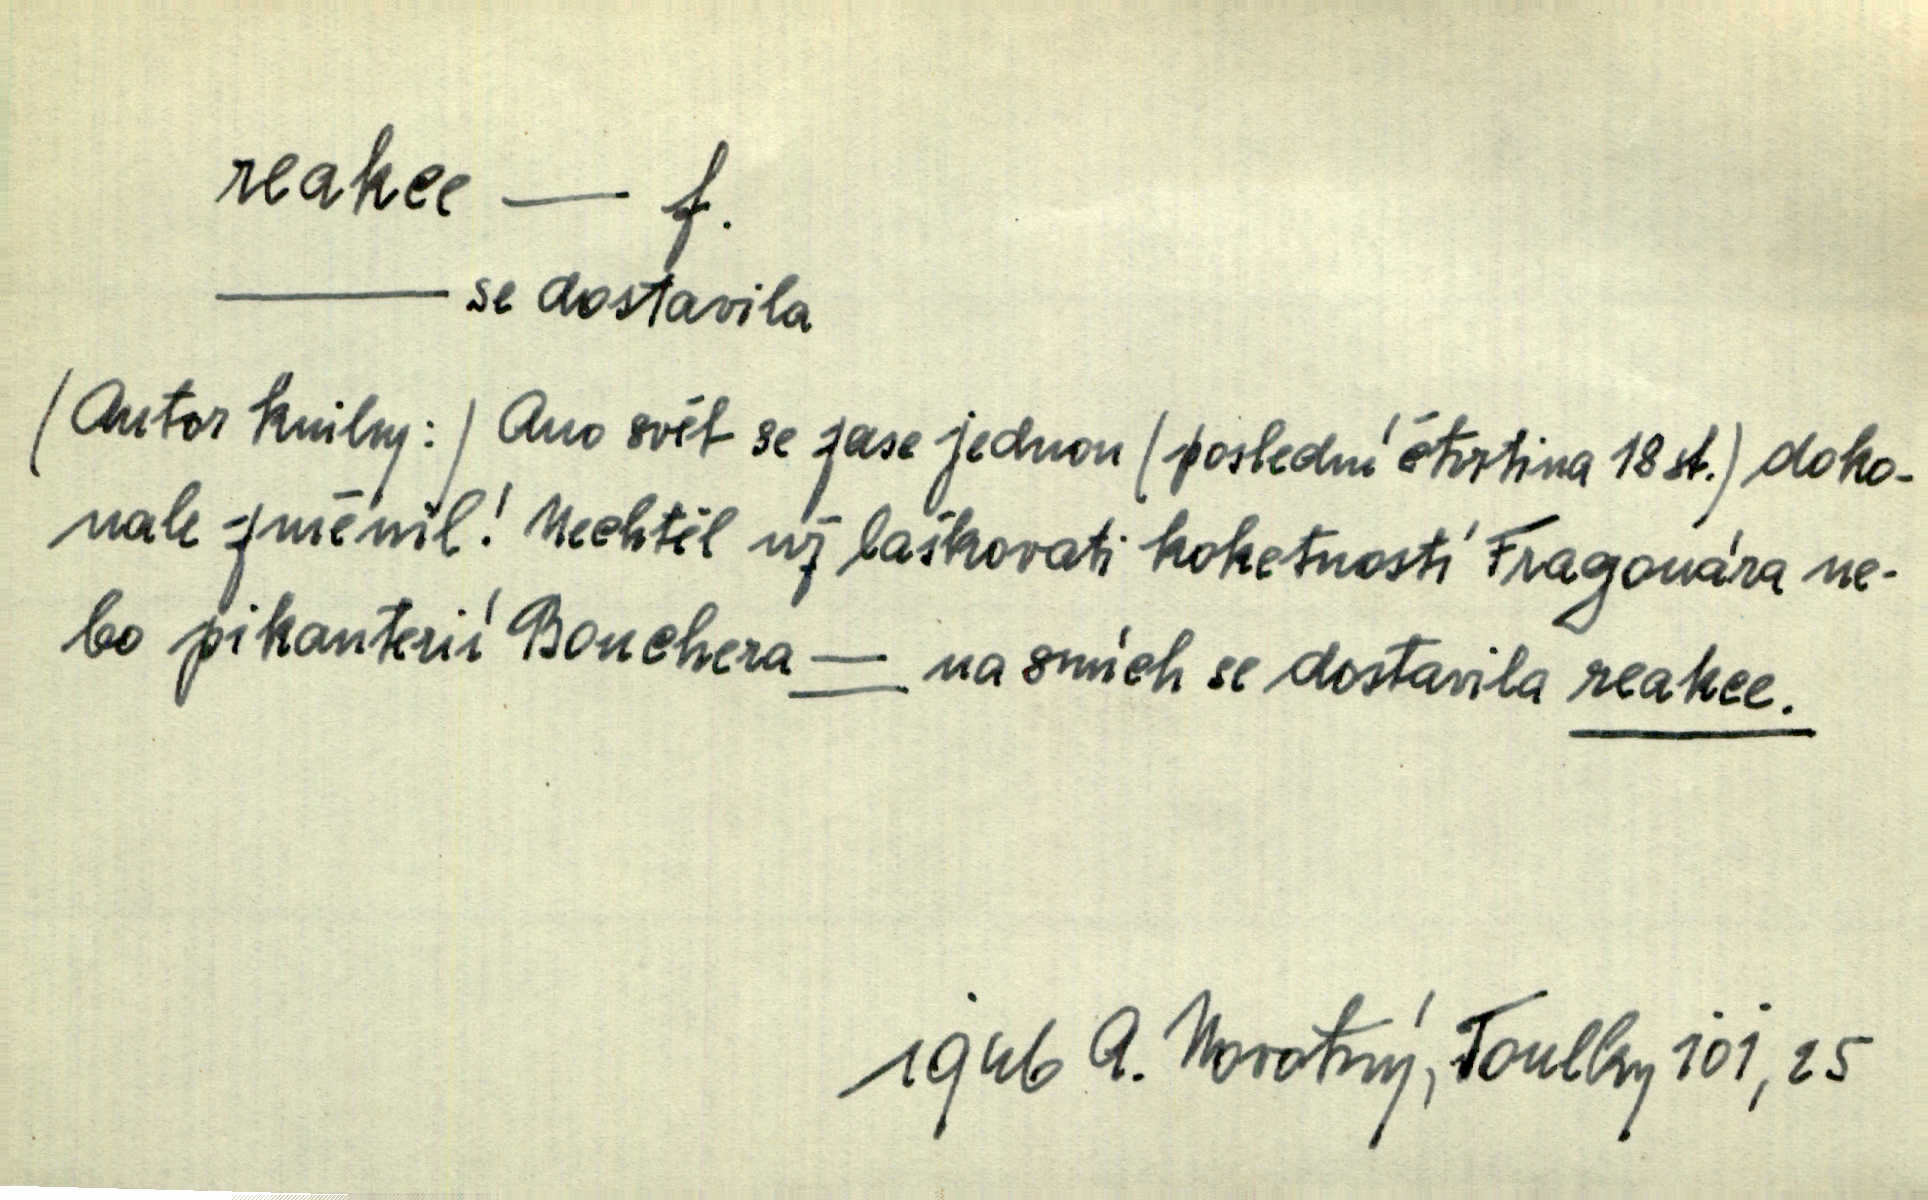 reakce — f.
—— se dostavila
(Autor knihy:) Ano svět se zase jednou (poslední čtvrtina 18 st.) doko-
nale změnil! Nechtěl už laškovati koketností Fragonára ne-
bo pikanterií Bouchera — na smích se dostavila reakce.
1946 A. Novotný, Toulky 101, 25